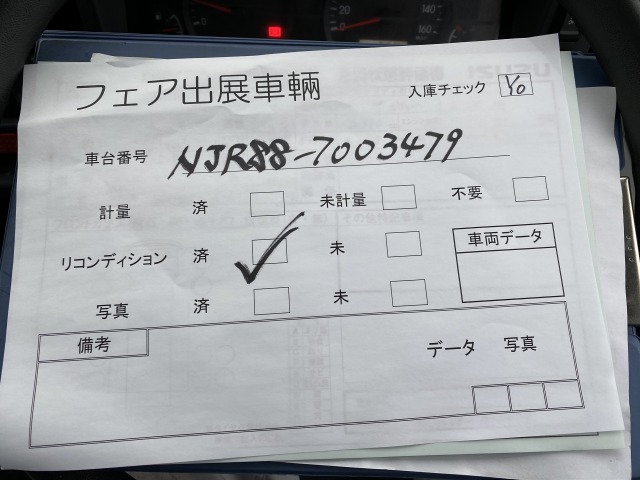 20 140 160
フェア出展車輌 入庫チェック Yo
車台番号 NJR88-7003479
計量 済 未計量 不要
リコンディション 済 ✓ 未 車両データ
写真 済 未
備考
データ 写真